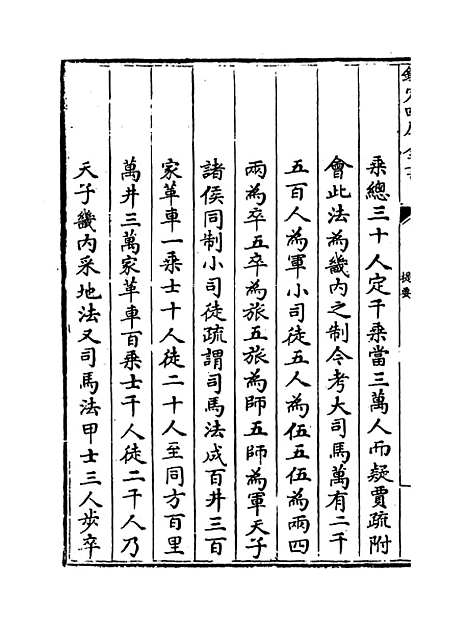 欽定四庫全書
提要
乘總三十人定千乘當三萬人而疑賈疏附
會此法為畿内之制今考大司馬萬有二千
五百人為軍小司徒五人為伍五伍為兩四
兩為卒五卒為旅五旅為師五師為軍天子
諸侯同制小司徒疏謂司馬法成百井三百
家革車一乘士十人徒二十人至同方百里
萬井三萬家革車百乘士千人徒二千人乃
天子畿内采地法又司馬法甲士三人步卒